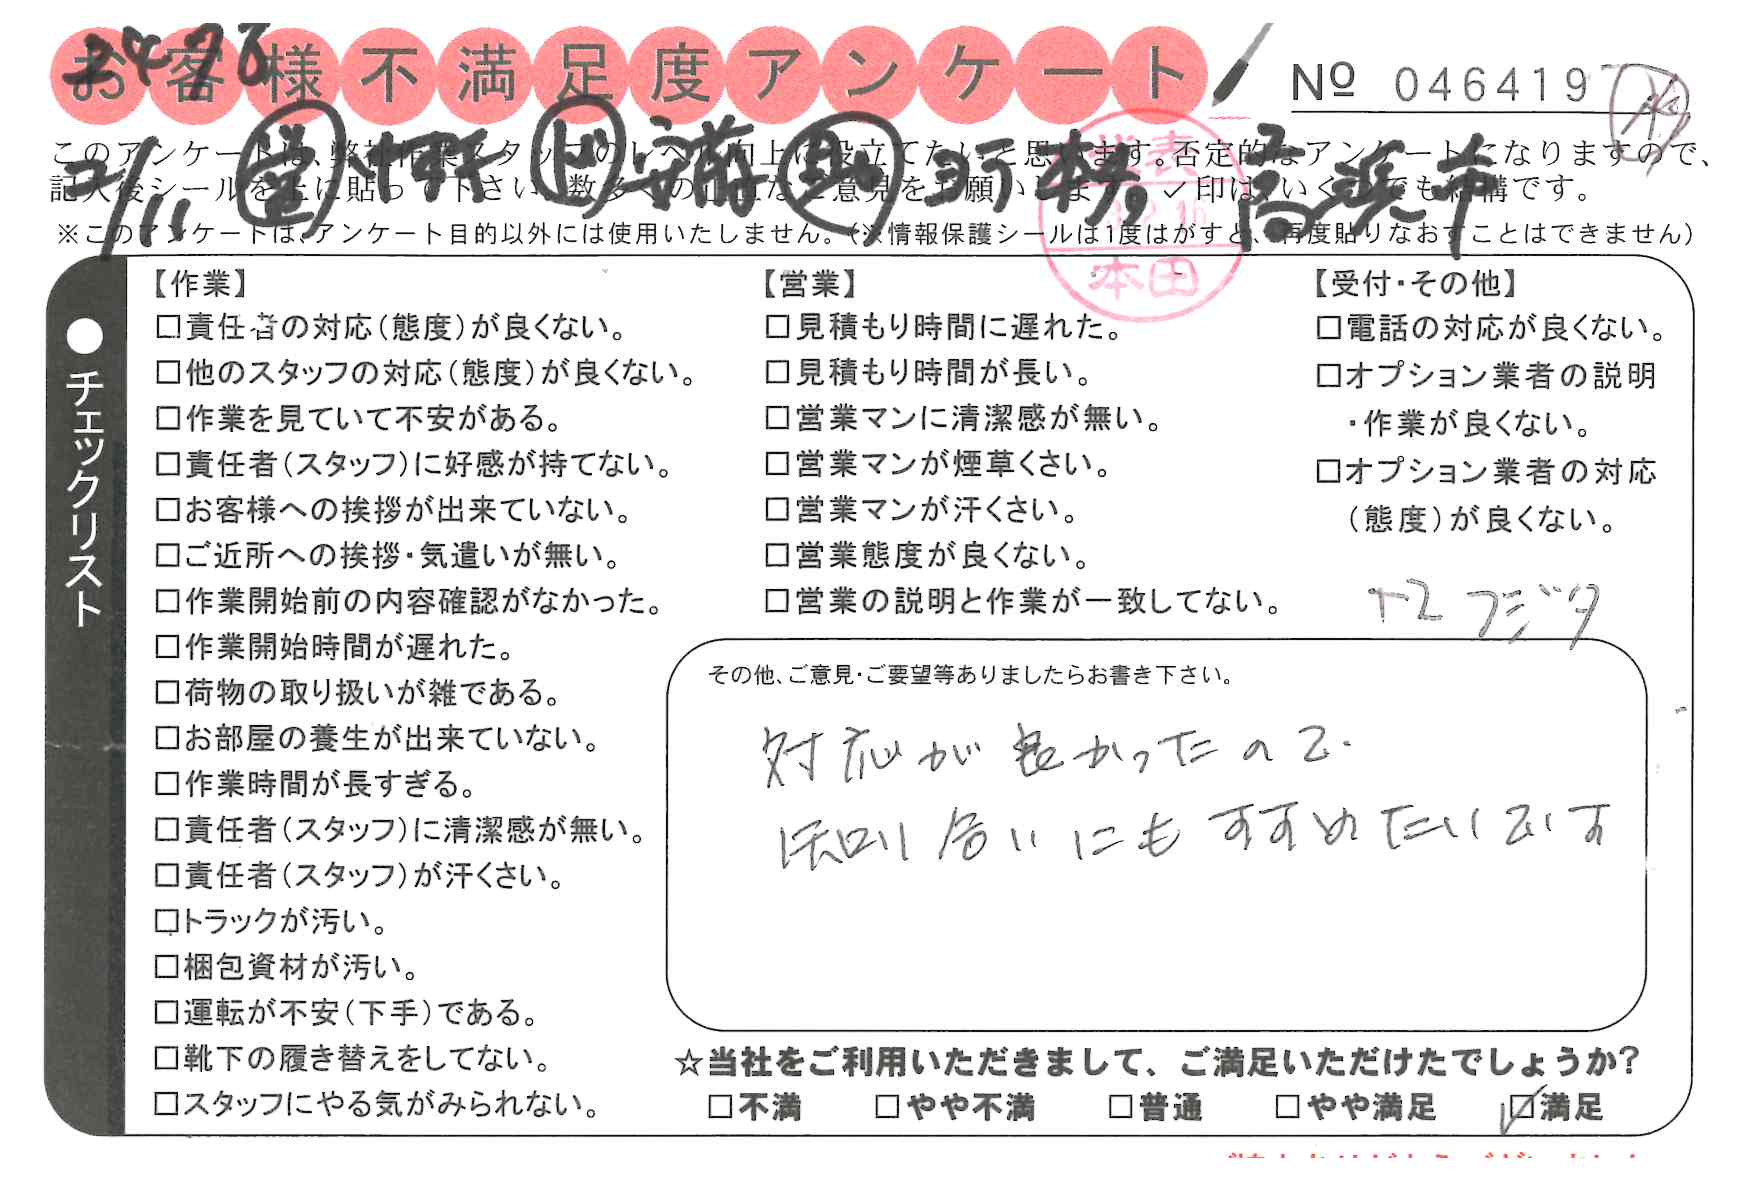 お客様不満足度アンケート
Nº 046419
このアンケートは、弊社作業スタッフのレベル向上に役立てたいと思います。否定的なアンケートになりますので、
記入後シールを上に貼って下さい。数多くの正直なご意見をお願いします。✓印は、いくつでも結構です。
※このアンケートは、アンケート目的以外には使用いたしません。(※情報保護シールは1度はがすと、再度貼りなおすことはできません)
代表
本田
●チェックリスト
【作業】
□責任者の対応(態度)が良くない。
□他のスタッフの対応(態度)が良くない。
□作業を見ていて不安がある。
□責任者(スタッフ)に好感が持てない。
□お客様への挨拶が出来ていない。
□ご近所への挨拶・気遣いが無い。
□作業開始前の内容確認がなかった。
□作業開始時間が遅れた。
□荷物の取り扱いが雑である。
□お部屋の養生が出来ていない。
□作業時間が長すぎる。
□責任者(スタッフ)に清潔感が無い。
□責任者(スタッフ)が汗くさい。
□トラックが汚い。
□梱包資材が汚い。
□運転が不安(下手)である。
□靴下の履き替えをしてない。
□スタッフにやる気がみられない。
【営業】
□見積もり時間に遅れた。
□見積もり時間が長い。
□営業マンに清潔感が無い。
□営業マンが煙草くさい。
□営業マンが汗くさい。
□営業態度が良くない。
□営業の説明と作業が一致してない。
【受付・その他】
□電話の対応が良くない。
□オプション業者の説明
・作業が良くない。
□オプション業者の対応
(態度)が良くない。
フジタ
その他、ご意見・ご要望等ありましたらお書き下さい。
対応が良かったので
知り合いにもすすめたいです
☆当社をご利用いただきまして、ご満足いただけたでしょうか?
□不満 □やや不満 □普通 □やや満足 ☑満足